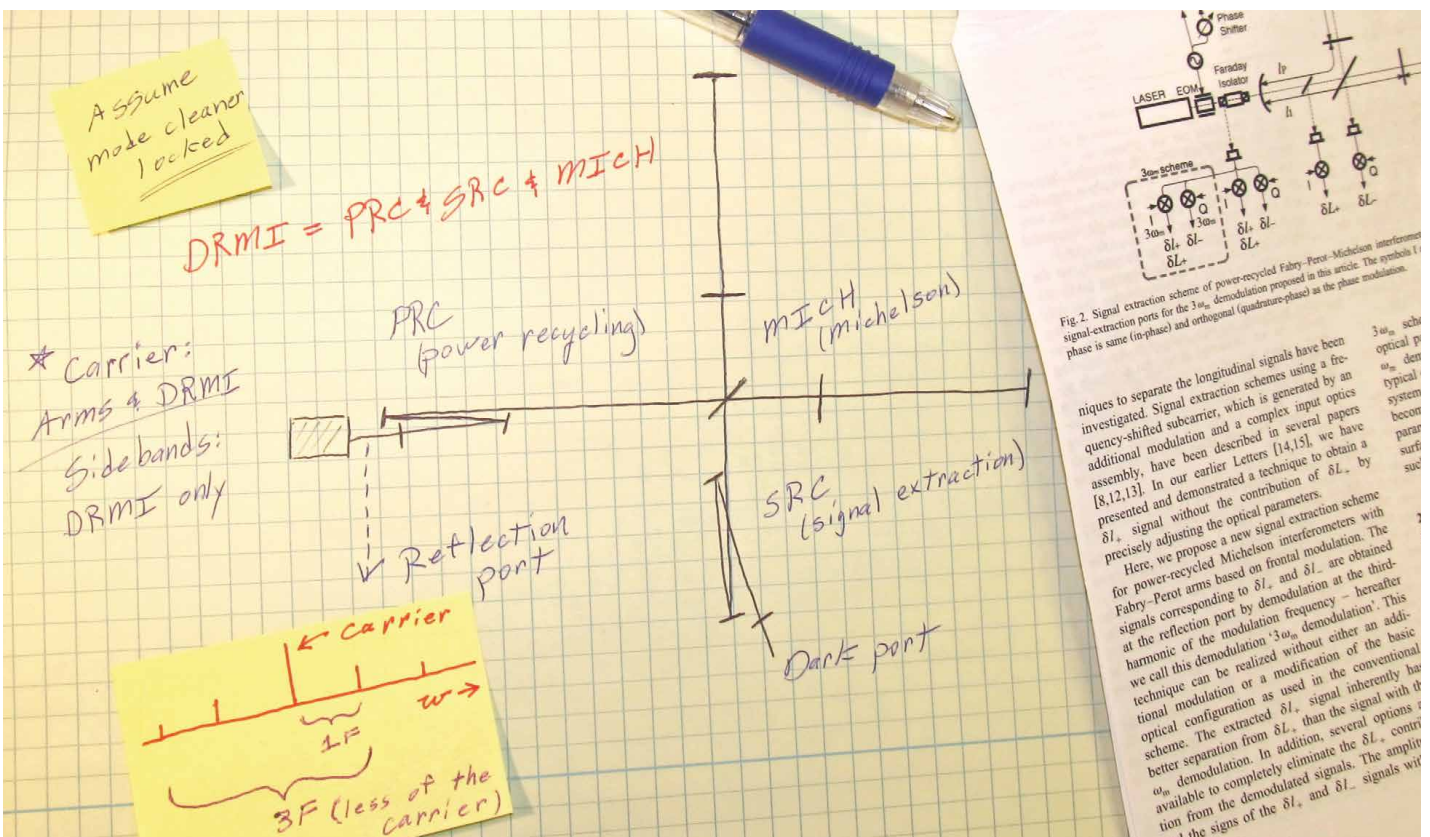 Assume
mode cleaner
locked
DRMI = PRC & SRC & MICH
PRC
(power recycling)
MICH
(michelson)
* Carrier:
Arms & DRMI
Sidebands:
DRMI only
SRC
(signal extraction)
Reflection
port
Dark port
carrier
w →
1F
3F (less of the
carrier)
Phase
Shifter
Faraday
Isolator
LASER EOM
lp
li
3ωm scheme
I Q I Q I Q
3ωm 3ωm
δl+ δl- δl+ δl- δL+ δL-
δL+ δL+
Fig. 2. Signal extraction scheme of power-recycled Fabry–Perot–Michelson interferomete
signal-extraction ports for the 3ωm demodulation proposed in this article. The symbols I
phase is same (in-phase) and orthogonal (quadrature-phase) as the phase modulation.
niques to separate the longitudinal signals have been
investigated. Signal extraction schemes using a fre-
quency-shifted subcarrier, which is generated by an
additional modulation and a complex input optics
assembly, have been described in several papers
[8,12,13]. In our earlier Letters [14,15], we have
presented and demonstrated a technique to obtain a
δl+ signal without the contribution of δL+ by
precisely adjusting the optical parameters.
Here, we propose a new signal extraction scheme
for power-recycled Michelson interferometers with
Fabry–Perot arms based on frontal modulation. The
signals corresponding to δl+ and δl- are obtained
at the reflection port by demodulation at the third-
harmonic of the modulation frequency – hereafter
we call this demodulation '3ωm demodulation'. This
technique can be realized without either an addi-
tional modulation or a modification of the basic
optical configuration as used in the conventional
scheme. The extracted δl+ signal inherently has
better separation from δL+ than the signal with th
ωm demodulation. In addition, several options a
available to completely eliminate the δL+ contri
tion from the demodulated signals. The amplit
the signs of the δl+ and δl- signals wit
3ωm sche
optical p
ωm den
typical
system
becom
param
surf
suc